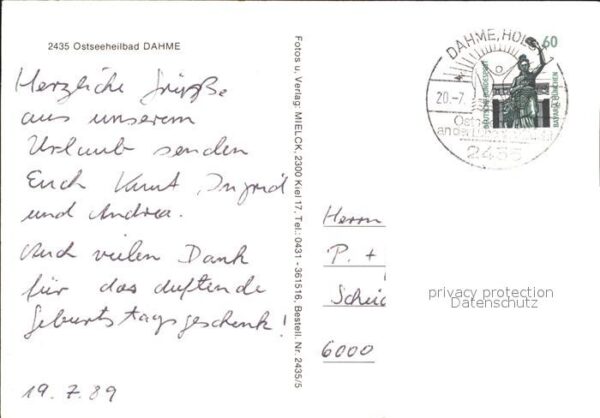 2435 Ostseeheilbad DAHME
Herzliche Grüße
aus unserem
Urlaub senden
Euch Knut, Ingrid
und Andrea.
Auch vielen Dank
für das duftende
Geburtstagsgeschenk!
19.7.89
Fotos u. Verlag: MIELCK, 2300 Kiel 17, Tel.: 0431 - 361516, Bestell. Nr. 2435/5
DAHME, HOLST
20.-7.
2435
60
DEUTSCHE BUNDESPOST
BAVARIA MÜNCHEN
Herrn
P. +
6000
privacy protection
Datenschutz